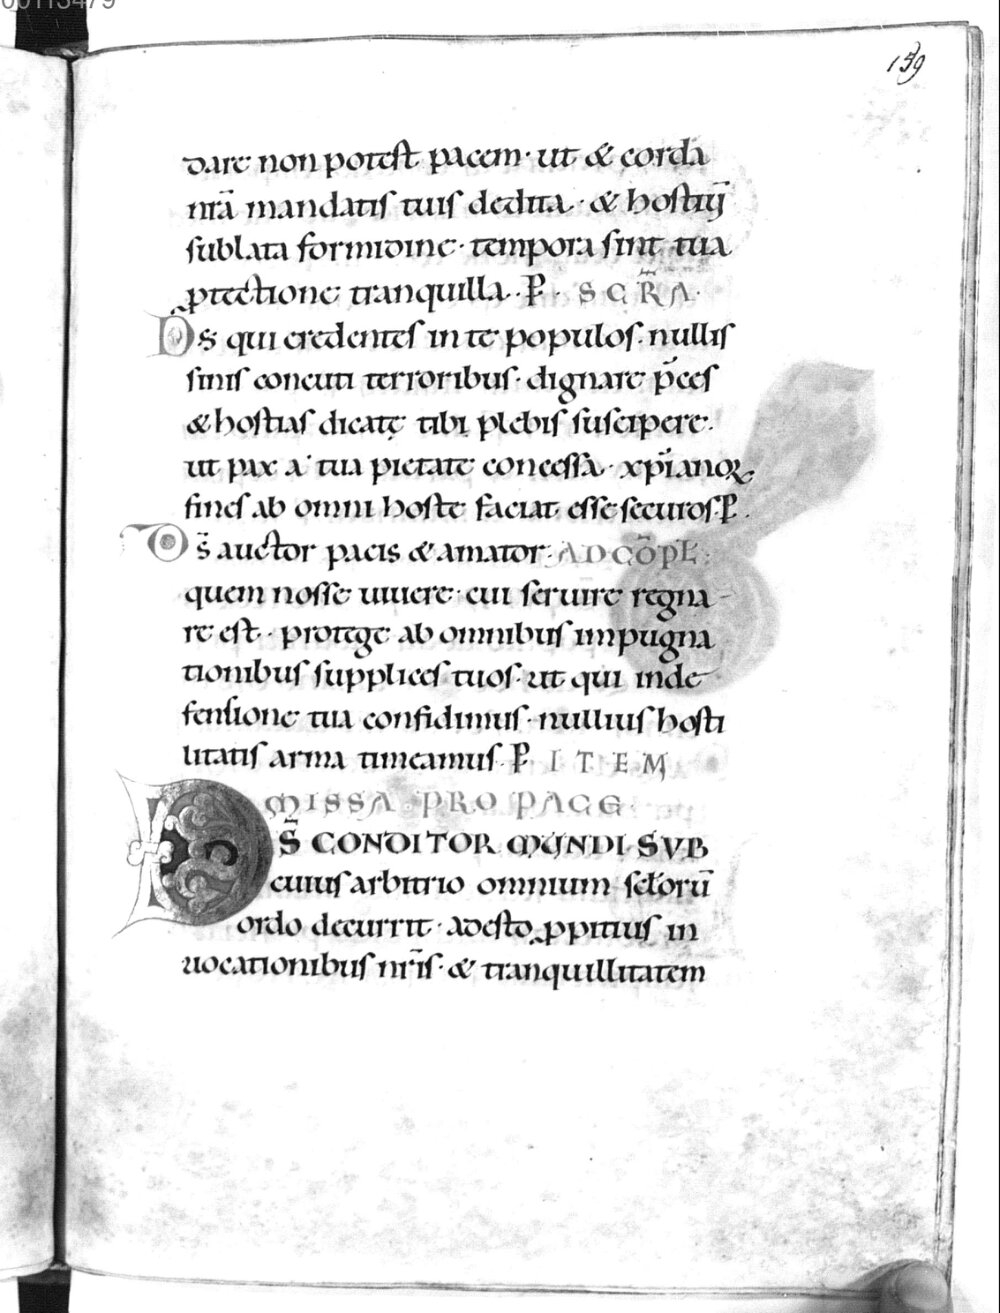 00113479
159
dare non potest pacem· ut & corda
nr̄a mandatis tuis dedita· & hostiū
sublata formidine· tempora sint tua
ꝓtectione tranquilla. P̄. SECR̄A.
Ds qui credentes in te populos. nullis
sinis concuti terroribus· dignare p̄ces
& hostias dicatę tibi plebis suscipere.
ut pax a tua pietate concessa· xp̄ianoꝝ
fines ab omni hoste faciat esse securos. P̄.
Ds̄ auctor pacis & amator. AD CŌPL̄.
quem nosse uiuere· cui seruire regna
re est· protege ab omnibus impugna
tionibus supplices tuos· ut qui inde
fensione tua confidimus· nullius hosti
litatis arma timeamus. P̄. ITEM
MISSA PRO PACE.
DS̄ CONDITOR MUNDI SVB
cuius arbitrio omnium sc̄lorū
ordo decurrit· adesto ꝓpitius in
uocationibus nr̄is· & tranquillitatem